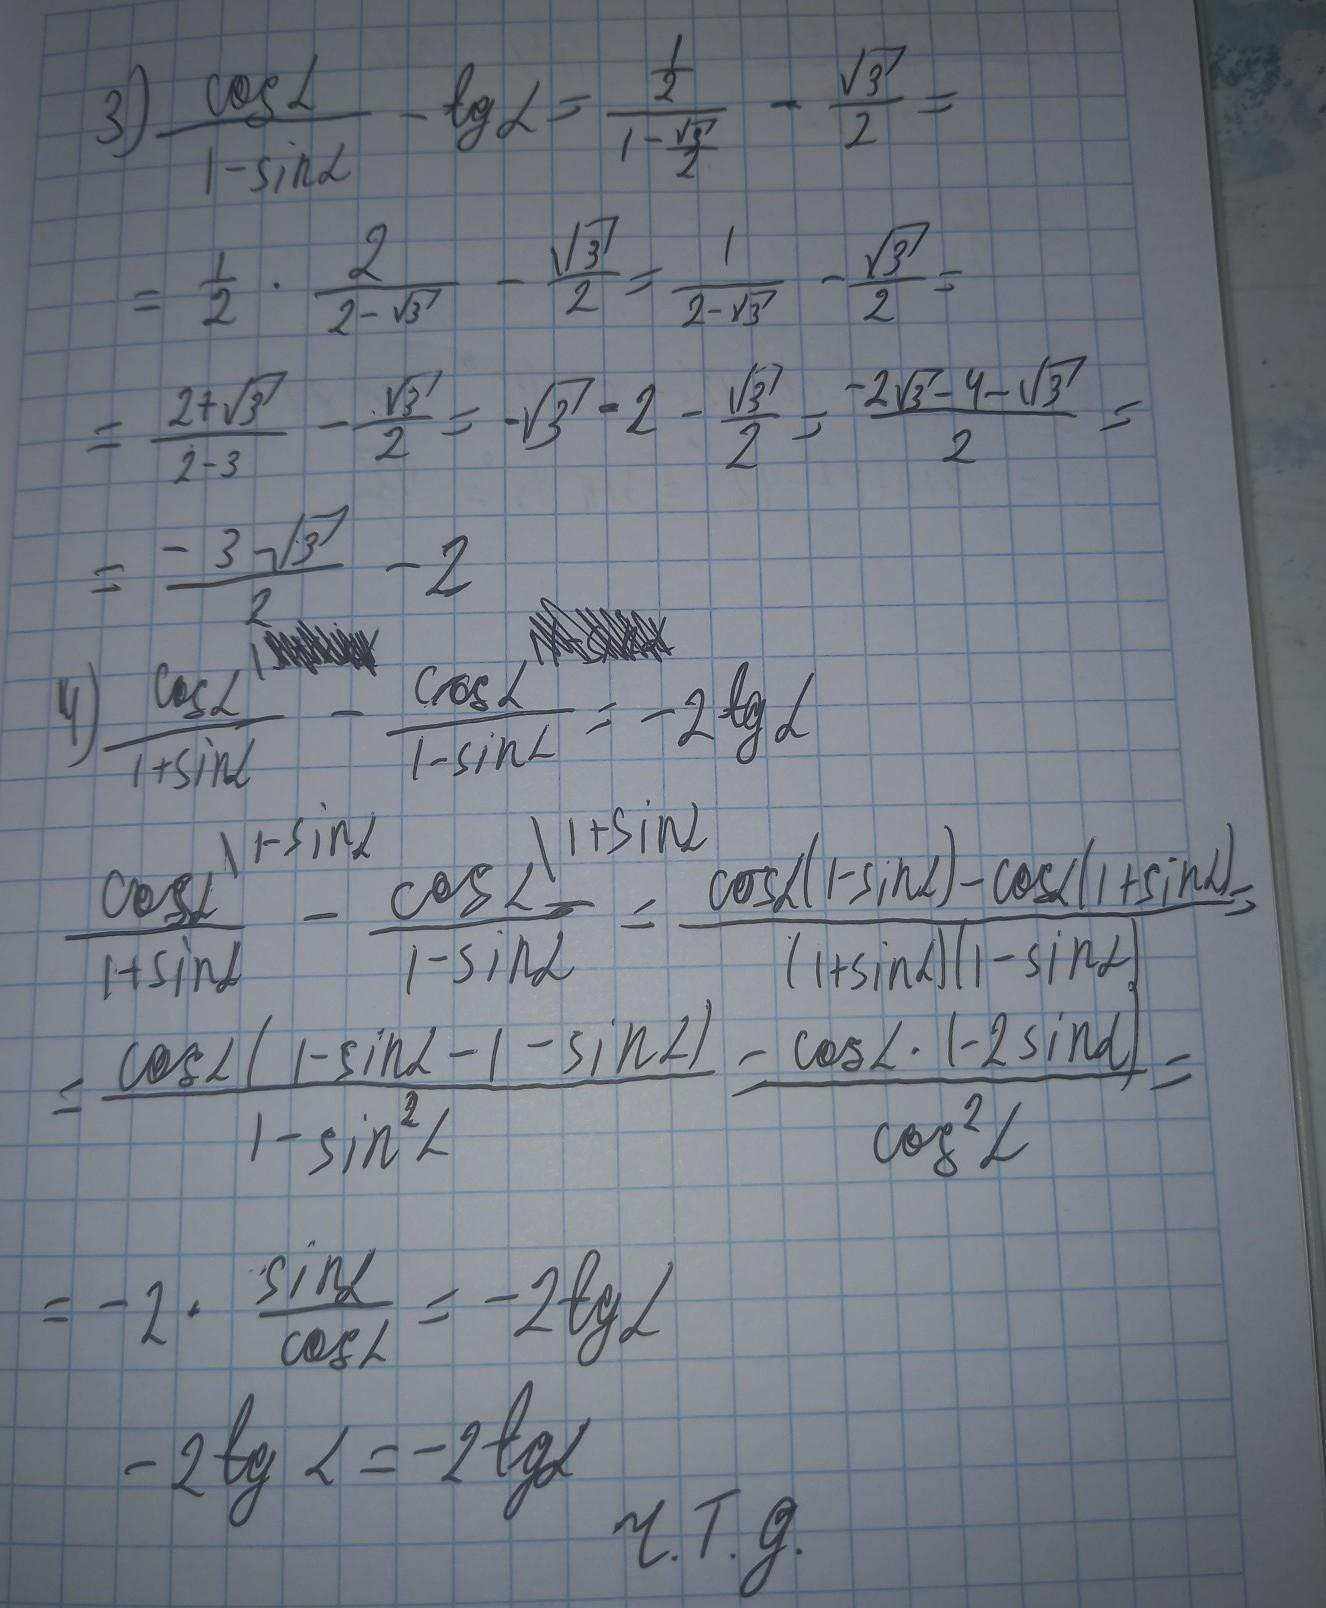 3) cosα/(1-sinα) - tgα = (1/2)/(1-√3/2) - √3/2 =
= 1/2 · 2/(2-√3) - √3/2 = 1/(2-√3) - √3/2 =
= (2+√3)/(2-3) - √3/2 = -√3 - 2 - √3/2 = (-2√3-4-√3)/2 =
= (-3√3)/2 - 2
4) cosα/(1+sinα) - cosα/(1-sinα) = -2tgα
cosα\1-sinα/(1+sinα) - cosα\1+sinα/(1-sinα) = (cosα(1-sinα)-cosα(1+sinα))/((1+sinα)(1-sinα)) =
= cosα(1-sinα-1-sinα)/(1-sin²α) = cosα·(-2sinα)/cos²α =
= -2 · sinα/cosα = -2tgα
-2tgα = -2tgα
ч.т.д.